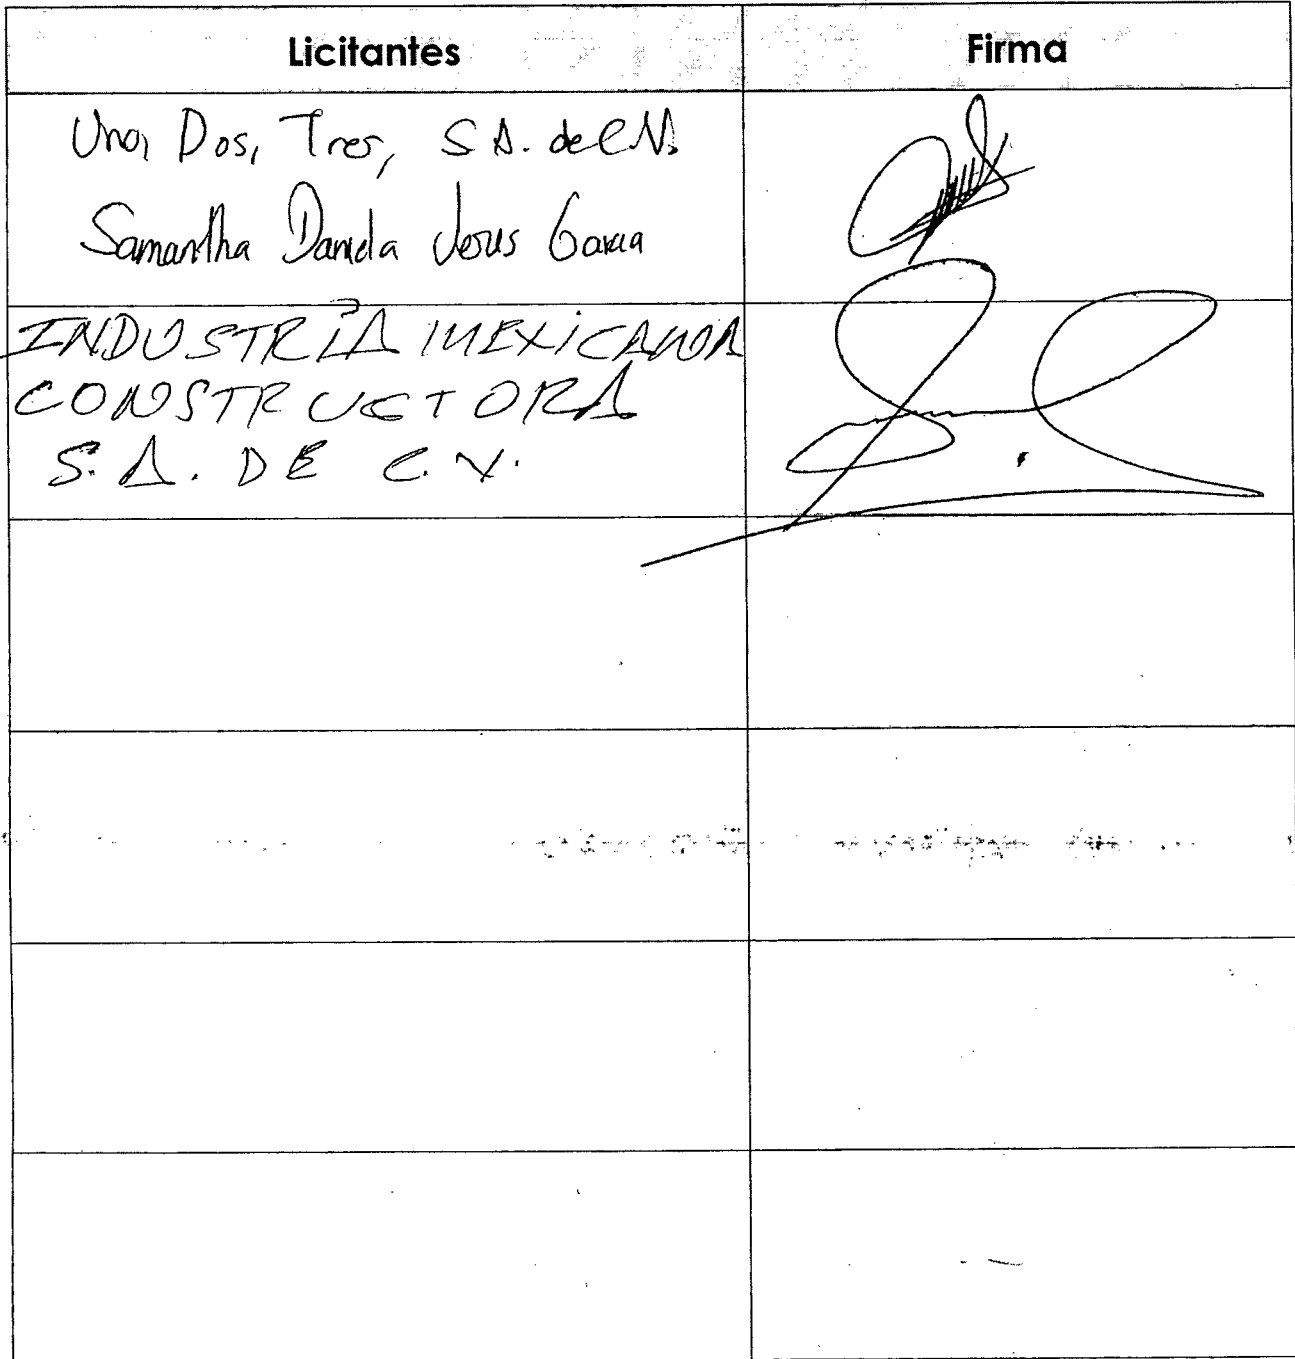 Licitantes Firma
Uno, Dos, Tres, S.A. de C.V.
Samantha Daniela Jesus Garcia
INDUSTRIA MEXICANA
CONSTRUCTORA
S.A. DE C.V.